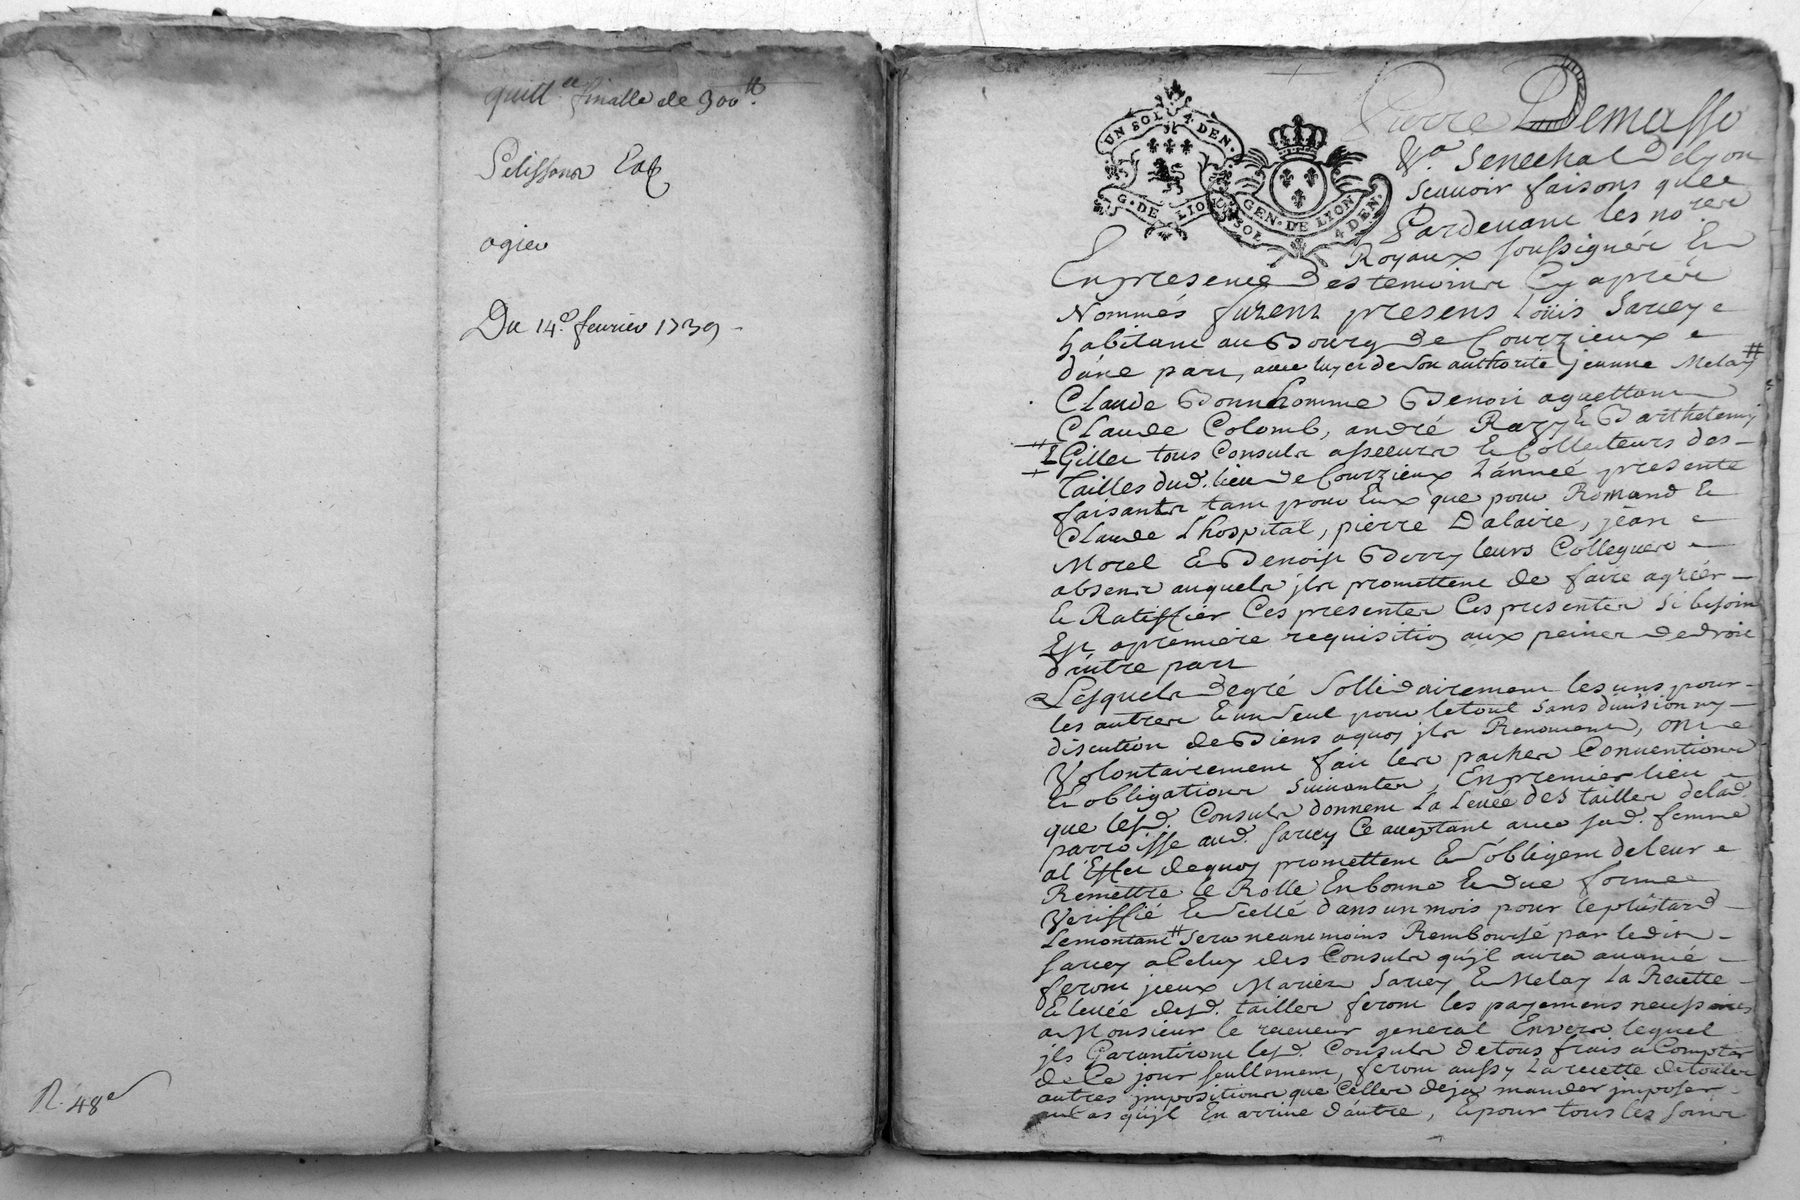 quitt.ce finalle de 300tt.
Pelissona Eat
ogier
Du 14e. feurier 1739
N. 48e
UN SOL 4 DEN.
G. DE LION
GEN. DE LYON
UN SOL 4 DEN.
Pierre Demasso
Sr. Senechal delyon
Scauoir faisons quee
Pardeuant les nores
Royaux soussignés Et
Enpresence des temoins Cy aprés
Nommés furent presens Loüis Sarcey
habitant au Bourg de Courzieux
dúne part, auec luy et de son authorité jeanne Melay #
Claude Bonnhomme Benoit aguettant
Claude Colomb, andré Razy & Barthelemy
# & Gilles tous Consuls asseeurs Et Collecteurs des
Tailles dud. lieu de Courzieux Lánneé presente
faisants tant pour Eux que pour Romand Et
Claude Lhospital, pierre Dalaire, jean
Morel Et Benoist Borry leurs Collegues
absens auquels jls promettent de faire agréér
Et Ratiffiér Ces presentes Ces presentes Si besoin
Est apremiere requisition aux peines de droit
dáutre part
Lesquels degré Sollidairement les uns pour
les autres Et un Seul pour letout Sans diuision ny
discution de Biens aquoy jls Renoncent, ont
Volontairement fait les paches Conuentions
Et obligations Suiuantes, Enpremier lieu
que lesd. Consuls donnent La Leueé des tailles delad.
parroisse aud. Sarcey Ce aceptant auec sad. femme
al'Effet dequoy promettent Et S'obligent deleur
Remettre le Rolle Enbonne Et due forme
Veriffié Et Scellé dans un mois pour leplústard
Lemontant # Sera neantmoins Remboursé par ledit
Sarcey a Celuy des Consuls quíjl aura auancé
feront jceux Mariés Sarcey Et Melay La Recette
Et leueé desd. tailles feront les payemens necessaires
a Monsieur le receueur general Enuers lequel
jls Garantiront lesd. Consuls detous frais a Compter
dece jour seullement, feront aussy La recette detoutes
autres jmpositions que Celles deja mandés jmposer
au cas quíjl En arriue dáutre, Et pour tous les soins